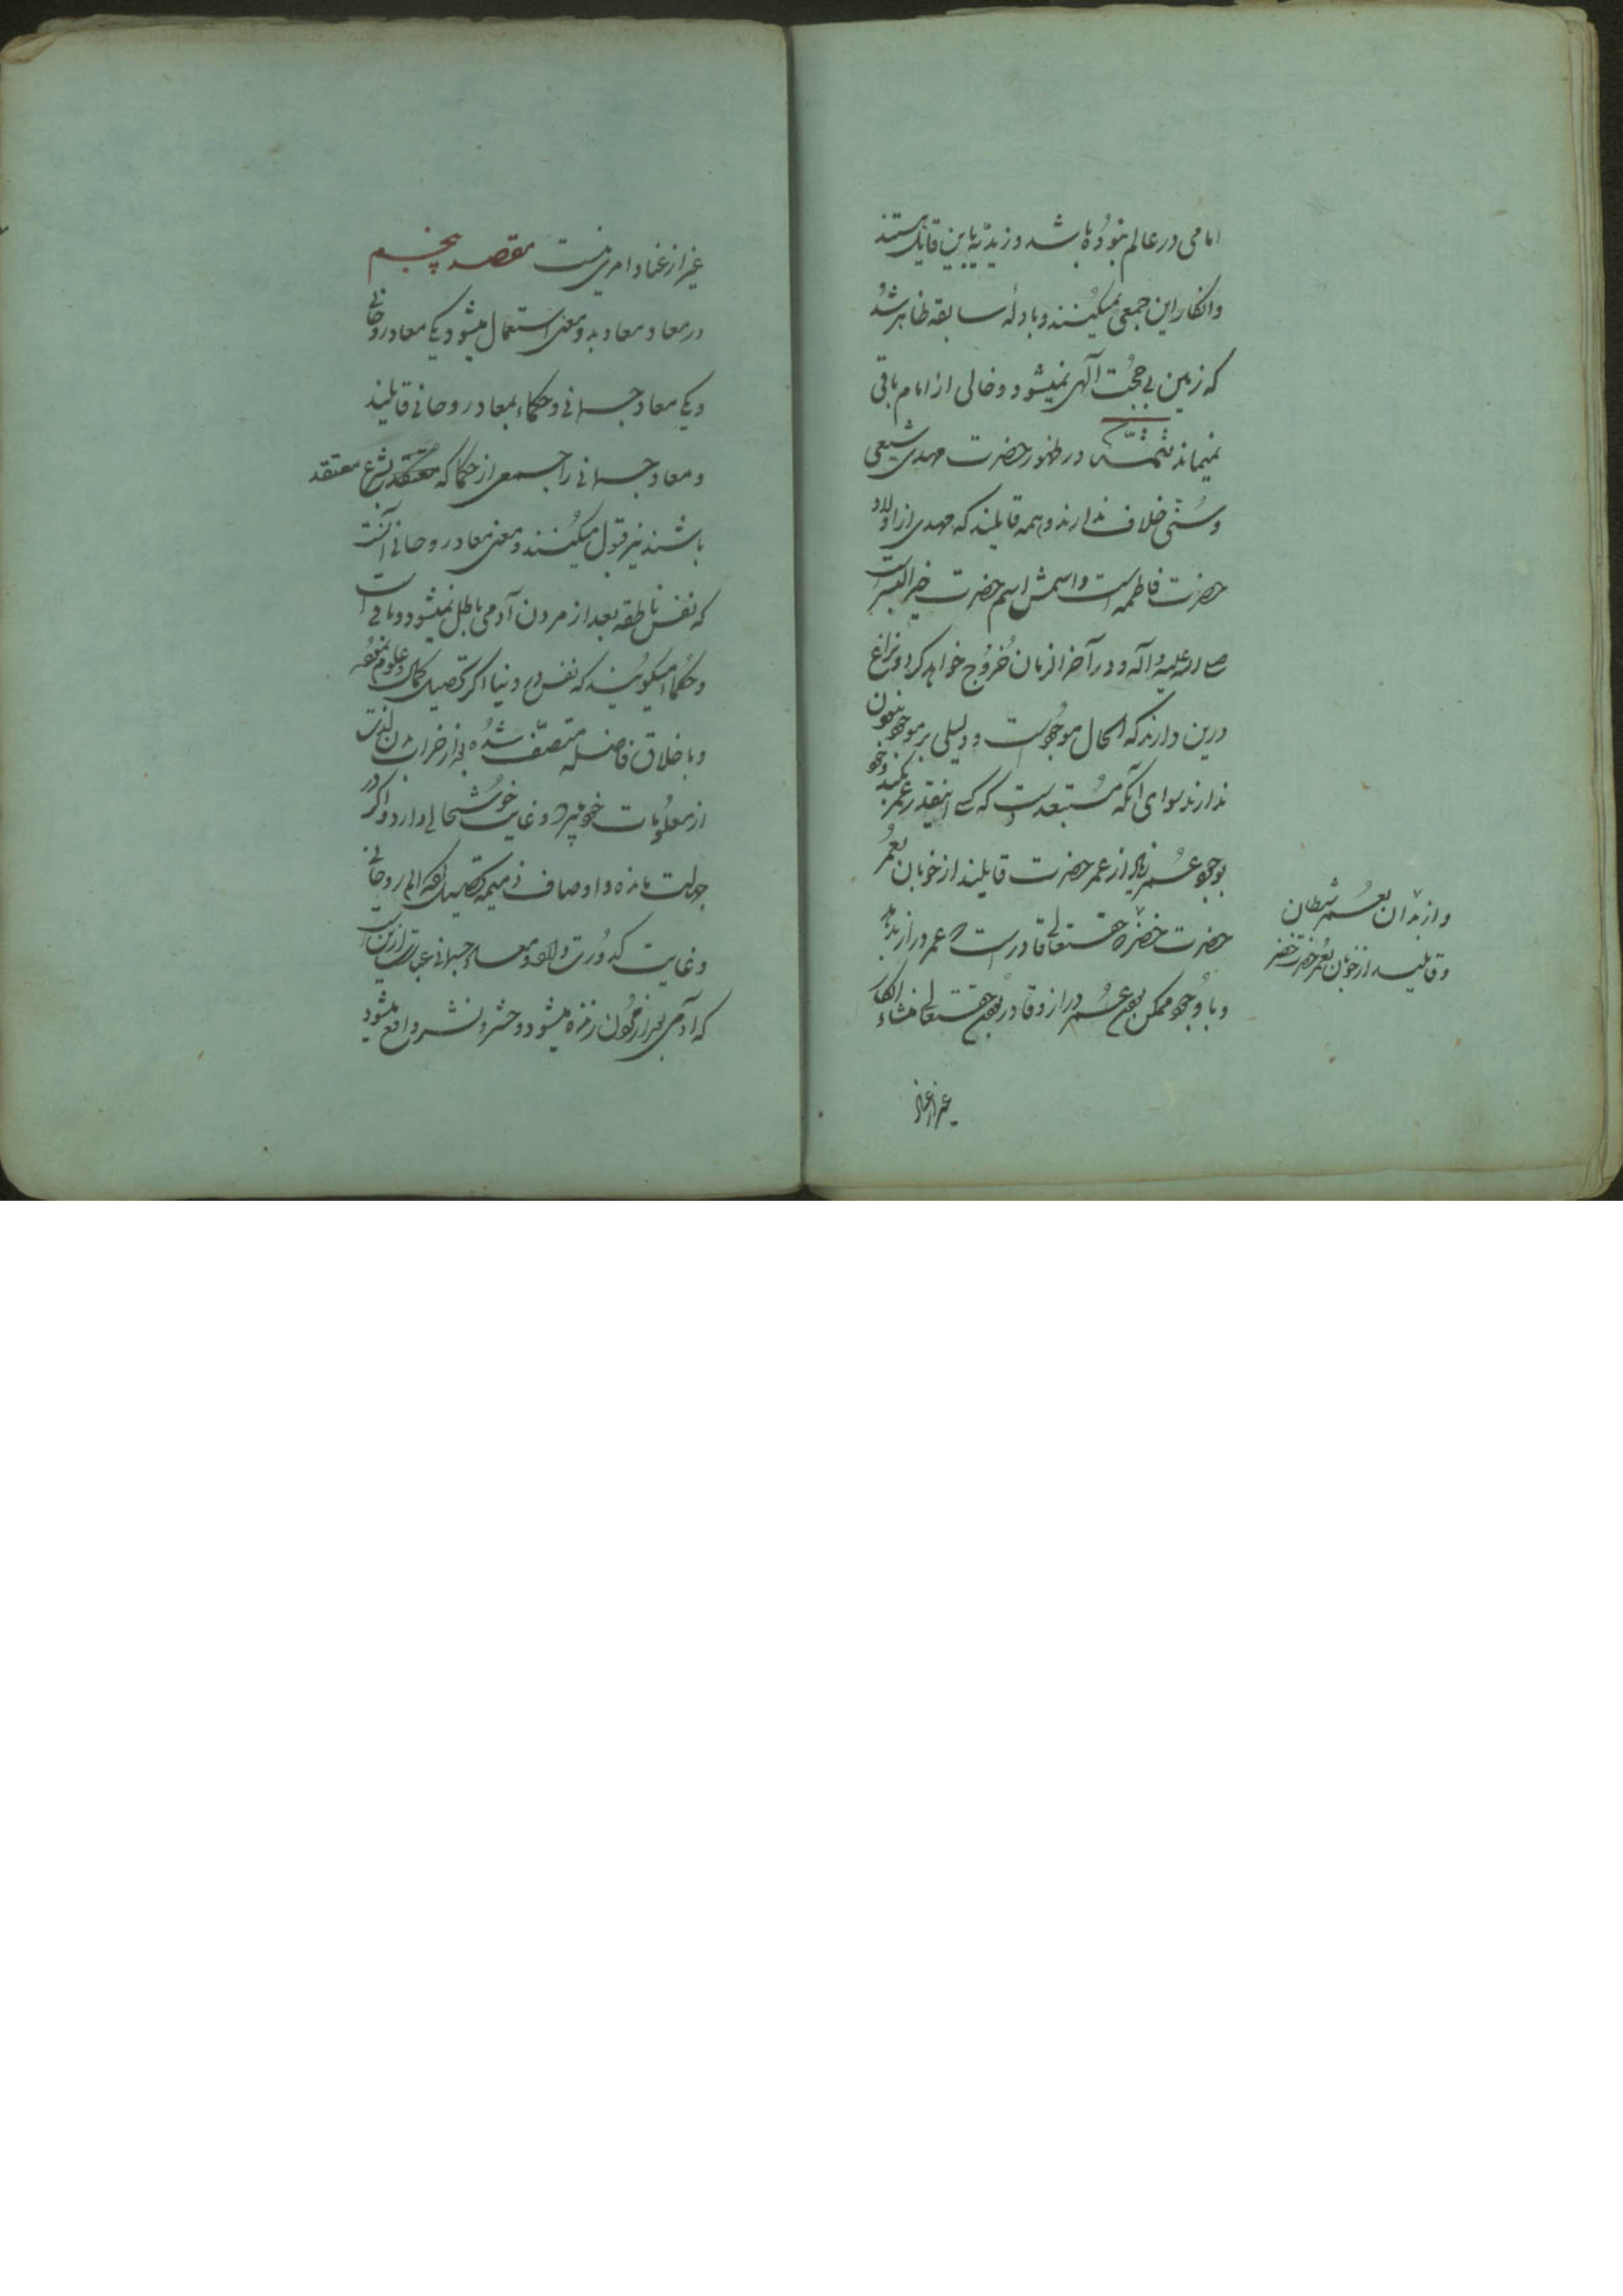 امامی در عالم نبوده باشد و زیدیه باین قایل نیستند
و انکار این جمعی میکنند و بادلهٔ سابقه ظاهر شد
که زمین بی حجت آلهی نمیشود و خالی از امام باقی
نمیماند تتمه در ظهور حضرت مهدی شیعی
و سُنّی خلاف ندارند و همه قایلند که مهدی از اولاد
حضرت فاطمه است و اسمش اسم حضرت خیر البشر است
صلی الله علیه و آله و در آخر الزمان خُروُج خواهد کرد و نزاع
درین دارند که الحال موجود است و دلیلی بر موجود نبودن
ندارند سوای آنکه مُستبعد است که کسی اینقدر عمر بکند و خود
بوجود عُمر زیاد از عمر حضرت قایلند از خوبان بعمر
حضرت خضر حقتعالی قادر است که عمر دراز بدهد
و با وُجود ممکن بودن عُمر دراز و قادر بودن حقتعالی منشاء انکار
و از بدان بعُمر شیطان
و قایلند از خوبان بعُمر حضرت خضر
غیر از عناد
غیر از عناد امری نیست مقصد پنجم
در معاد و معاد بدو معنی استعمال میشود یکی معاد روحانی
و یکی معاد جسمانی و حکماء بمعاد روحانی قایلند
و معاد جسمانی را جمعی از حکما که معتقد بشرع معتقد
باشند نیز قبول میکنند و معنی معاد روحانی آنست
که نفس ناطقه بعد از مردن آدمی باطل نمیشود و باقی است
و حُکماء میکویند که نفس در دنیا اکر تحصیل کمال و علوم نموده
و باخلاق فاضله متصّف شُده بعد از خراب بدن لذت
از معلُومات خود میبرد و غایت خوُشحالی دارد و اکر در
جهالت مانده و اوصاف ذمیمه تحصیل کرده الم روحانی
و غایت کدوُرت دارد و معاد جسمانی عبارت ازین است
که آدمی بعد از مردن زنده میشود و حشر و نشر واقع میشود